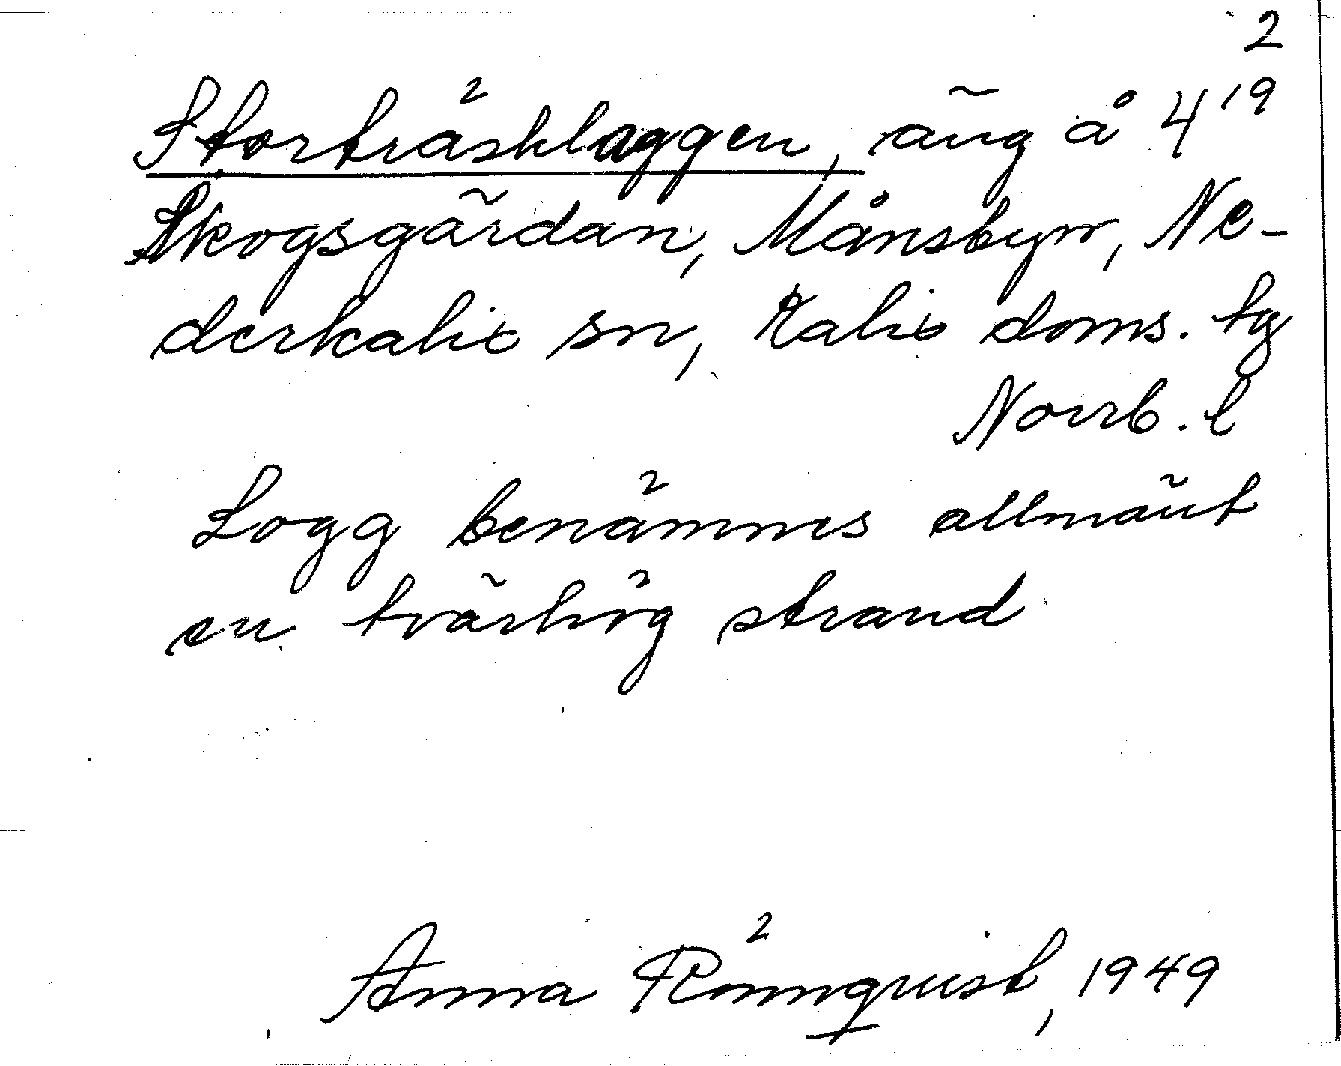 2
Storträskloggen, äng å 4¹⁹
Skogsgärdan, Månsbyn, Ne-
derkalix sn, Kalix doms. tg
Norrb. l
Logg benämnes allmänt
en tvärhög strand
Anna Rönnquist, 1949